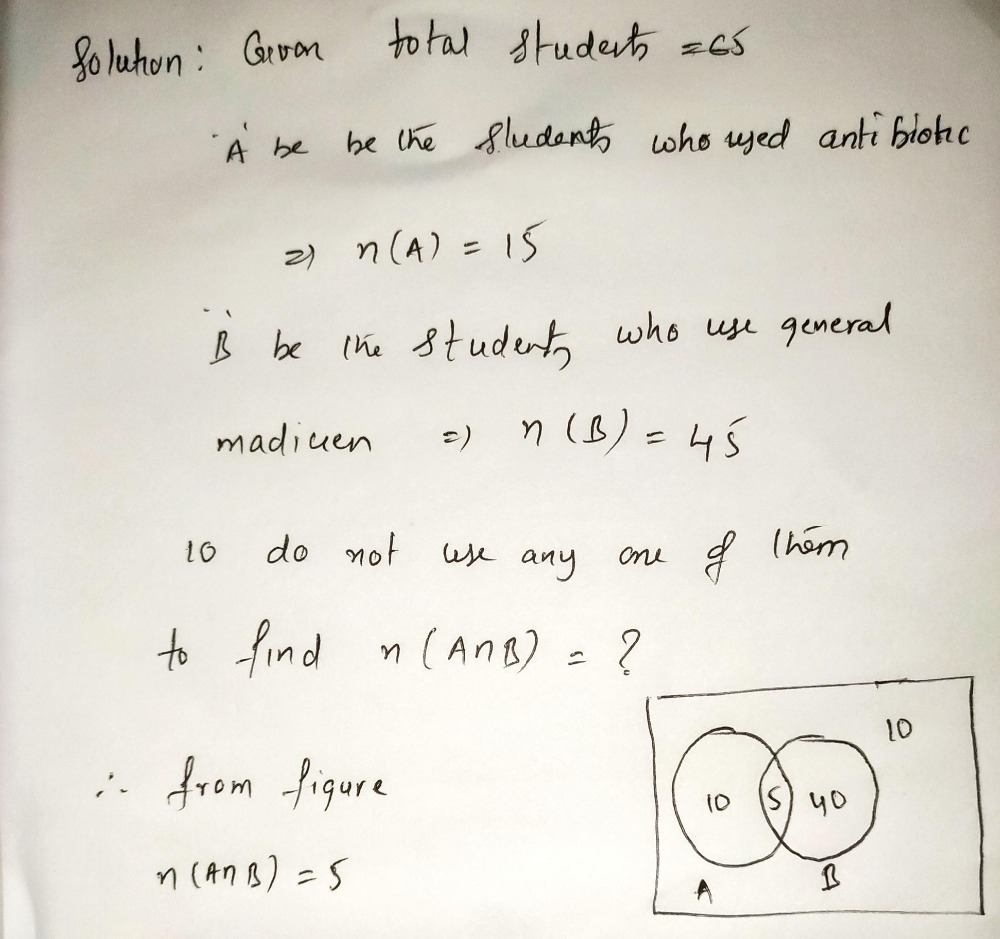 Solution: Given total students = 65
'A' be be the students who used antibiotic
=> n(A) = 15
'B' be the students who use general
madicien => n(B) = 45
10 do not use any one of them
to find n(A∩B) = ?
∴ from figure
n(A∩B) = 5
10
10 5 40
A B